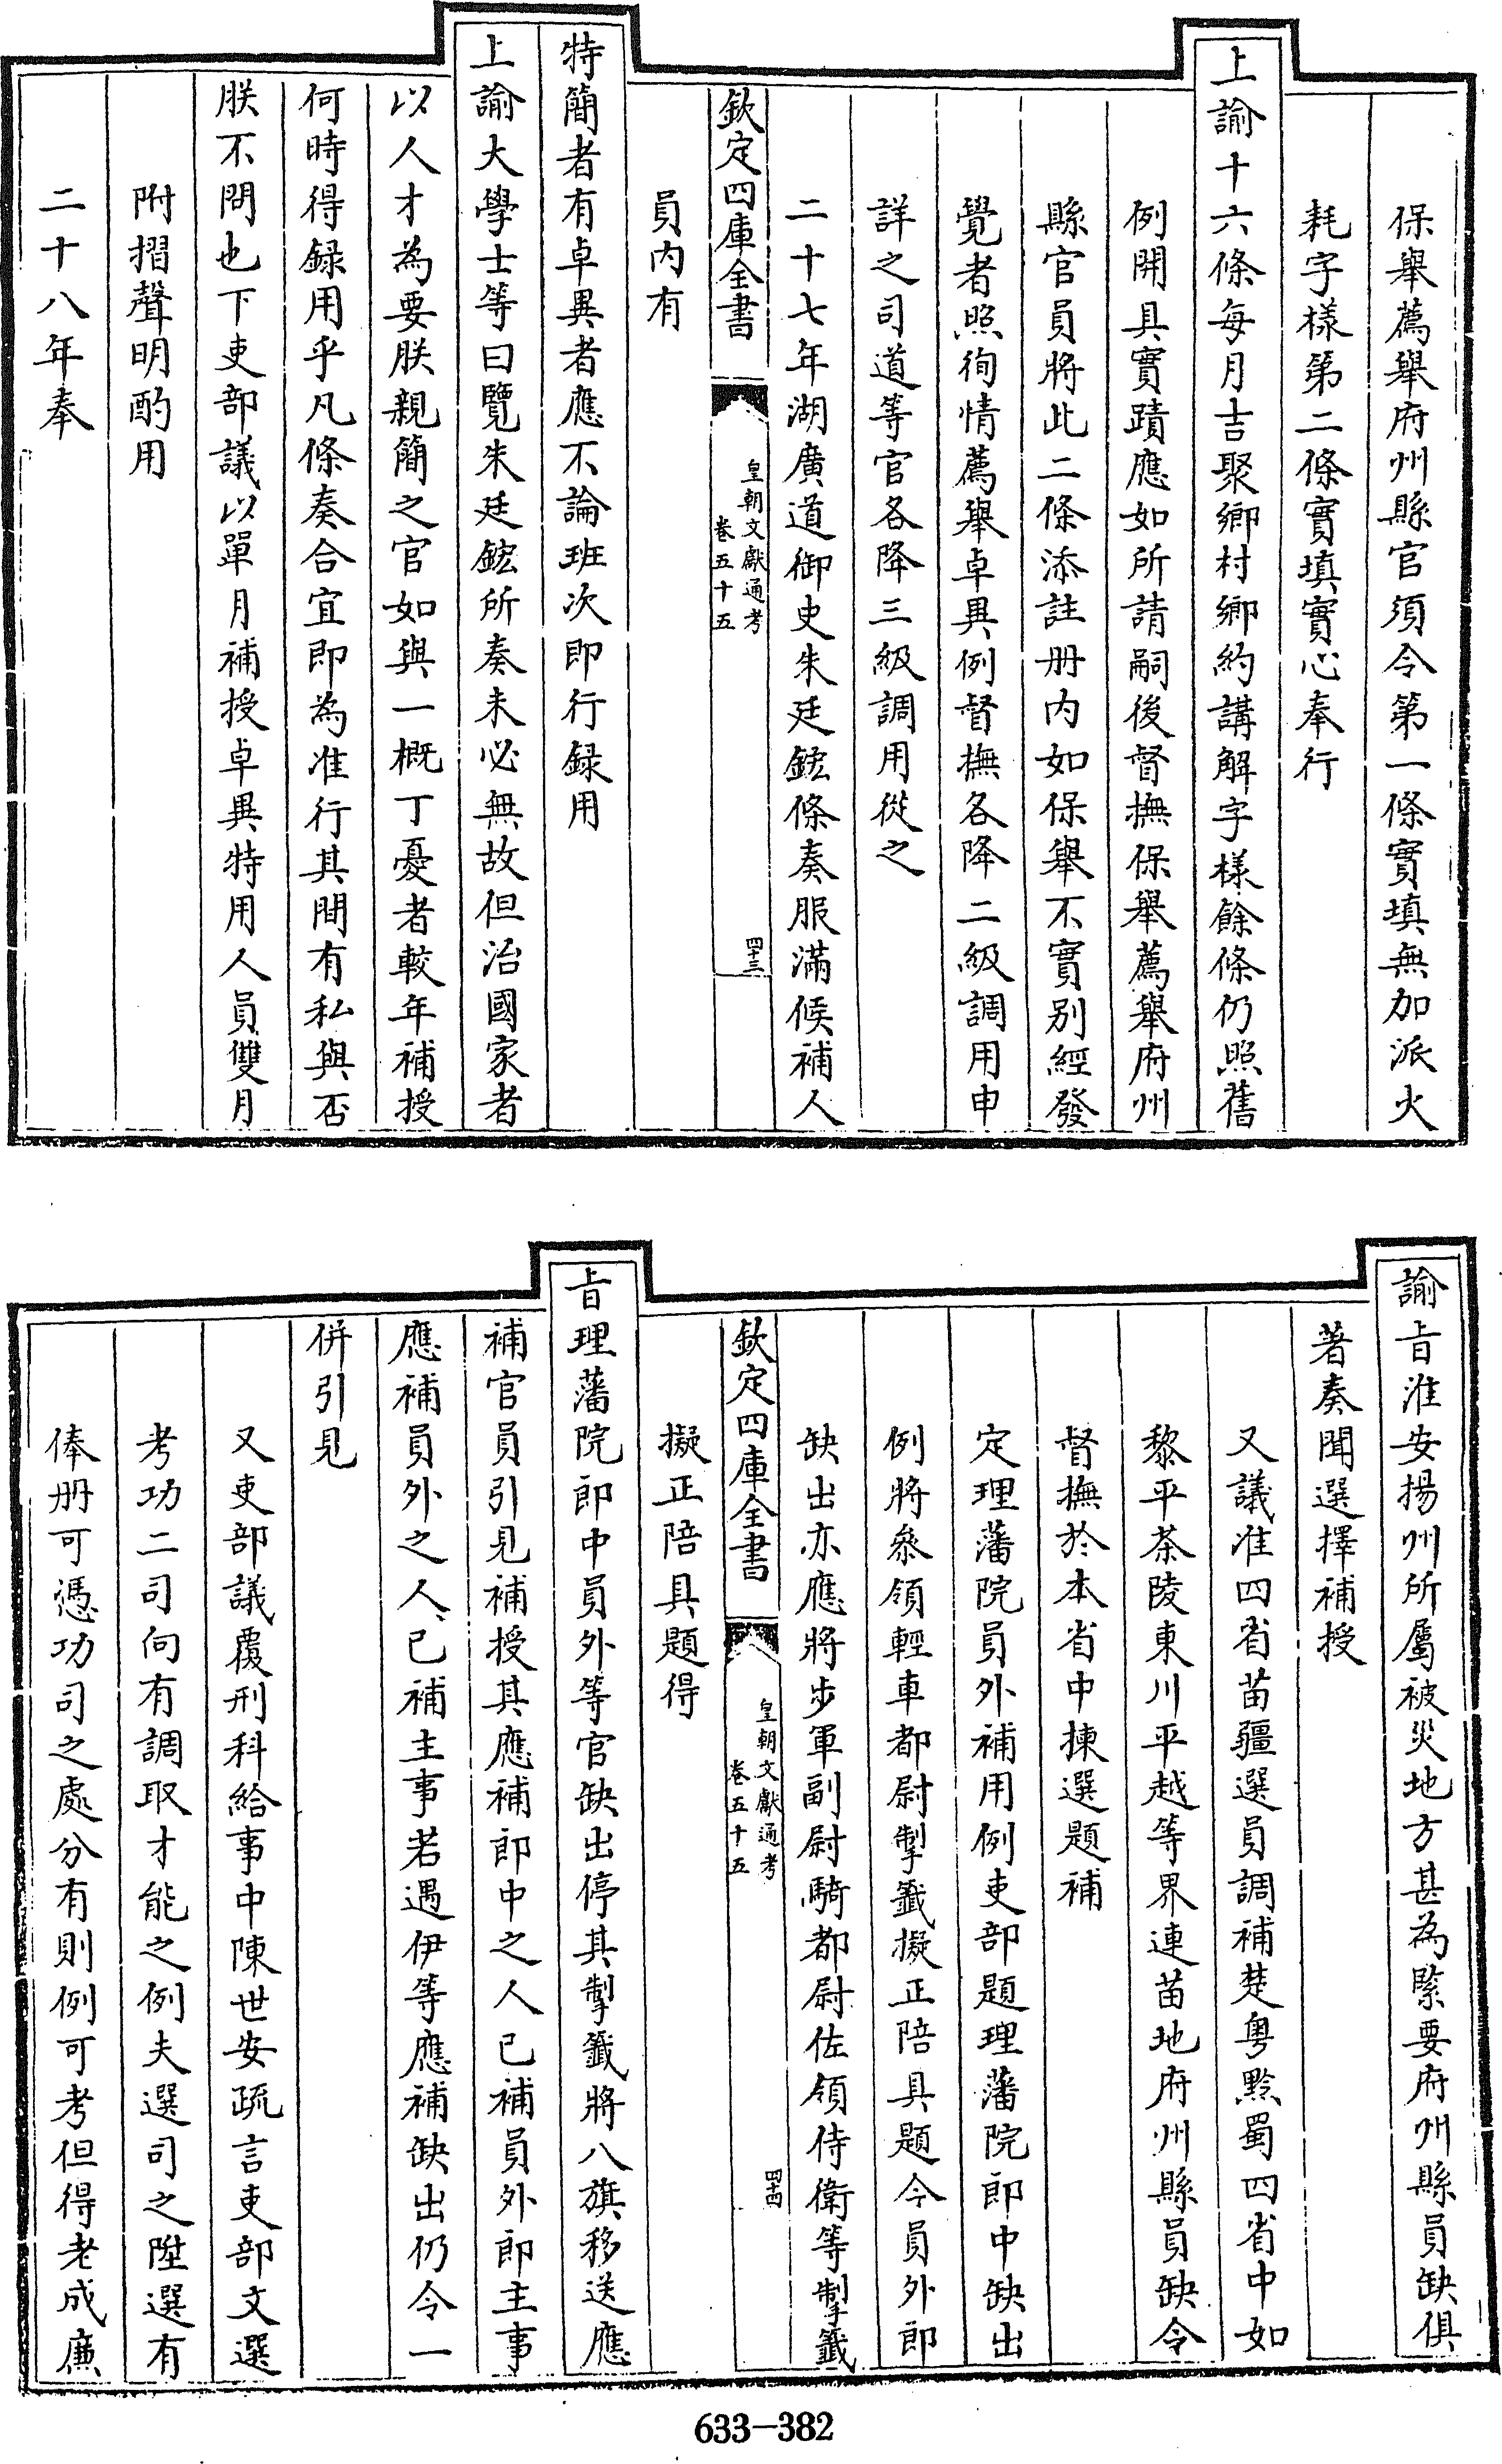 保舉薦舉府州縣官須令第一條實填無加派火
耗字樣第二條實填實心奉行
上諭十六條每月吉聚鄉村鄉約講解字樣餘條仍照舊
例開具實蹟應如所請嗣後督撫保舉薦舉府州
縣官員將此二條添註册内如保舉不實别經發
覺者照徇情薦舉卓異例督撫各降二級調用申
詳之司道等官各降三級調用從之
二十七年湖廣道御史朱廷鋐條奏服滿候補人
欽定四庫全書
皇朝文獻通考
卷五十五
四十三
員内有
特簡者有卓異者應不論班次即行録用
上諭大學士等曰覽朱廷鋐所奏未必無故但治國家者
以人才為要朕親簡之官如與一概丁憂者較年補授
何時得録用乎凡條奏合宜即為准行其間有私與否
朕不問也下吏部議以單月補授卓異特用人員雙月
附摺聲明酌用
二十八年奉
諭㫖淮安揚州所屬被災地方甚為緊要府州縣員缺俱
著奏聞選擇補授
又議准四省苗疆選員調補楚粤黔蜀四省中如
黎平茶陵東川平越等界連苗地府州縣員缺令
督撫於本省中揀選題補
定理藩院員外補用例吏部題理藩院郎中缺出
例將叅領輕車都尉掣籖擬正陪具題今員外郎
缺出亦應將步軍副尉騎都尉佐領侍衛等掣籤
欽定四庫全書
皇朝文獻通考
卷五十五
四十四
擬正陪具題得
㫖理藩院郎中員外等官缺出停其掣籤將八旗移送應
補官員引見補授其應補郎中之人已補員外郎主事
應補員外之人已補主事若遇伊等應補缺出仍令一
併引見
又吏部議覆刑科給事中陳世安疏言吏部文選
考功二司向有調取才能之例夫選司之陞選有
俸册可憑功司之處分有則例可考但得老成廉
633-382